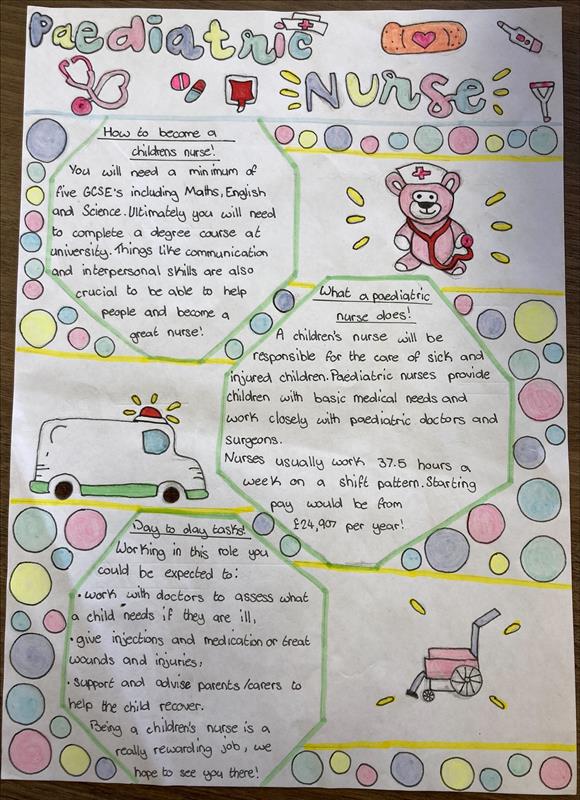 Paediatric
Nurse
How to become a
childrens nurse!
You will need a minimum of
five GCSE's including Maths, English
and Science. Ultimately you will need
to complete a degree course at
university. Things like communication
and interpersonal skills are also
crucial to be able to help
people and become a
great nurse!
What a paediatric
nurse does!
A children's nurse will be
responsible for the care of sick and
injured children. Paediatric nurses provide
children with basic medical needs and
work closely with paediatric doctors and
surgeons.
Nurses usually work 37.5 hours a
week on a shift pattern. Starting
pay would be from
£24,907 per year!
Day to day tasks!
Working in this role you
could be expected to:
• work with doctors to assess what
a child needs if they are ill,
• give injections and medication or treat
wounds and injuries,
• support and advise parents/carers to
help the child recover.
Being a children's nurse is a
really rewarding job, we
hope to see you there!